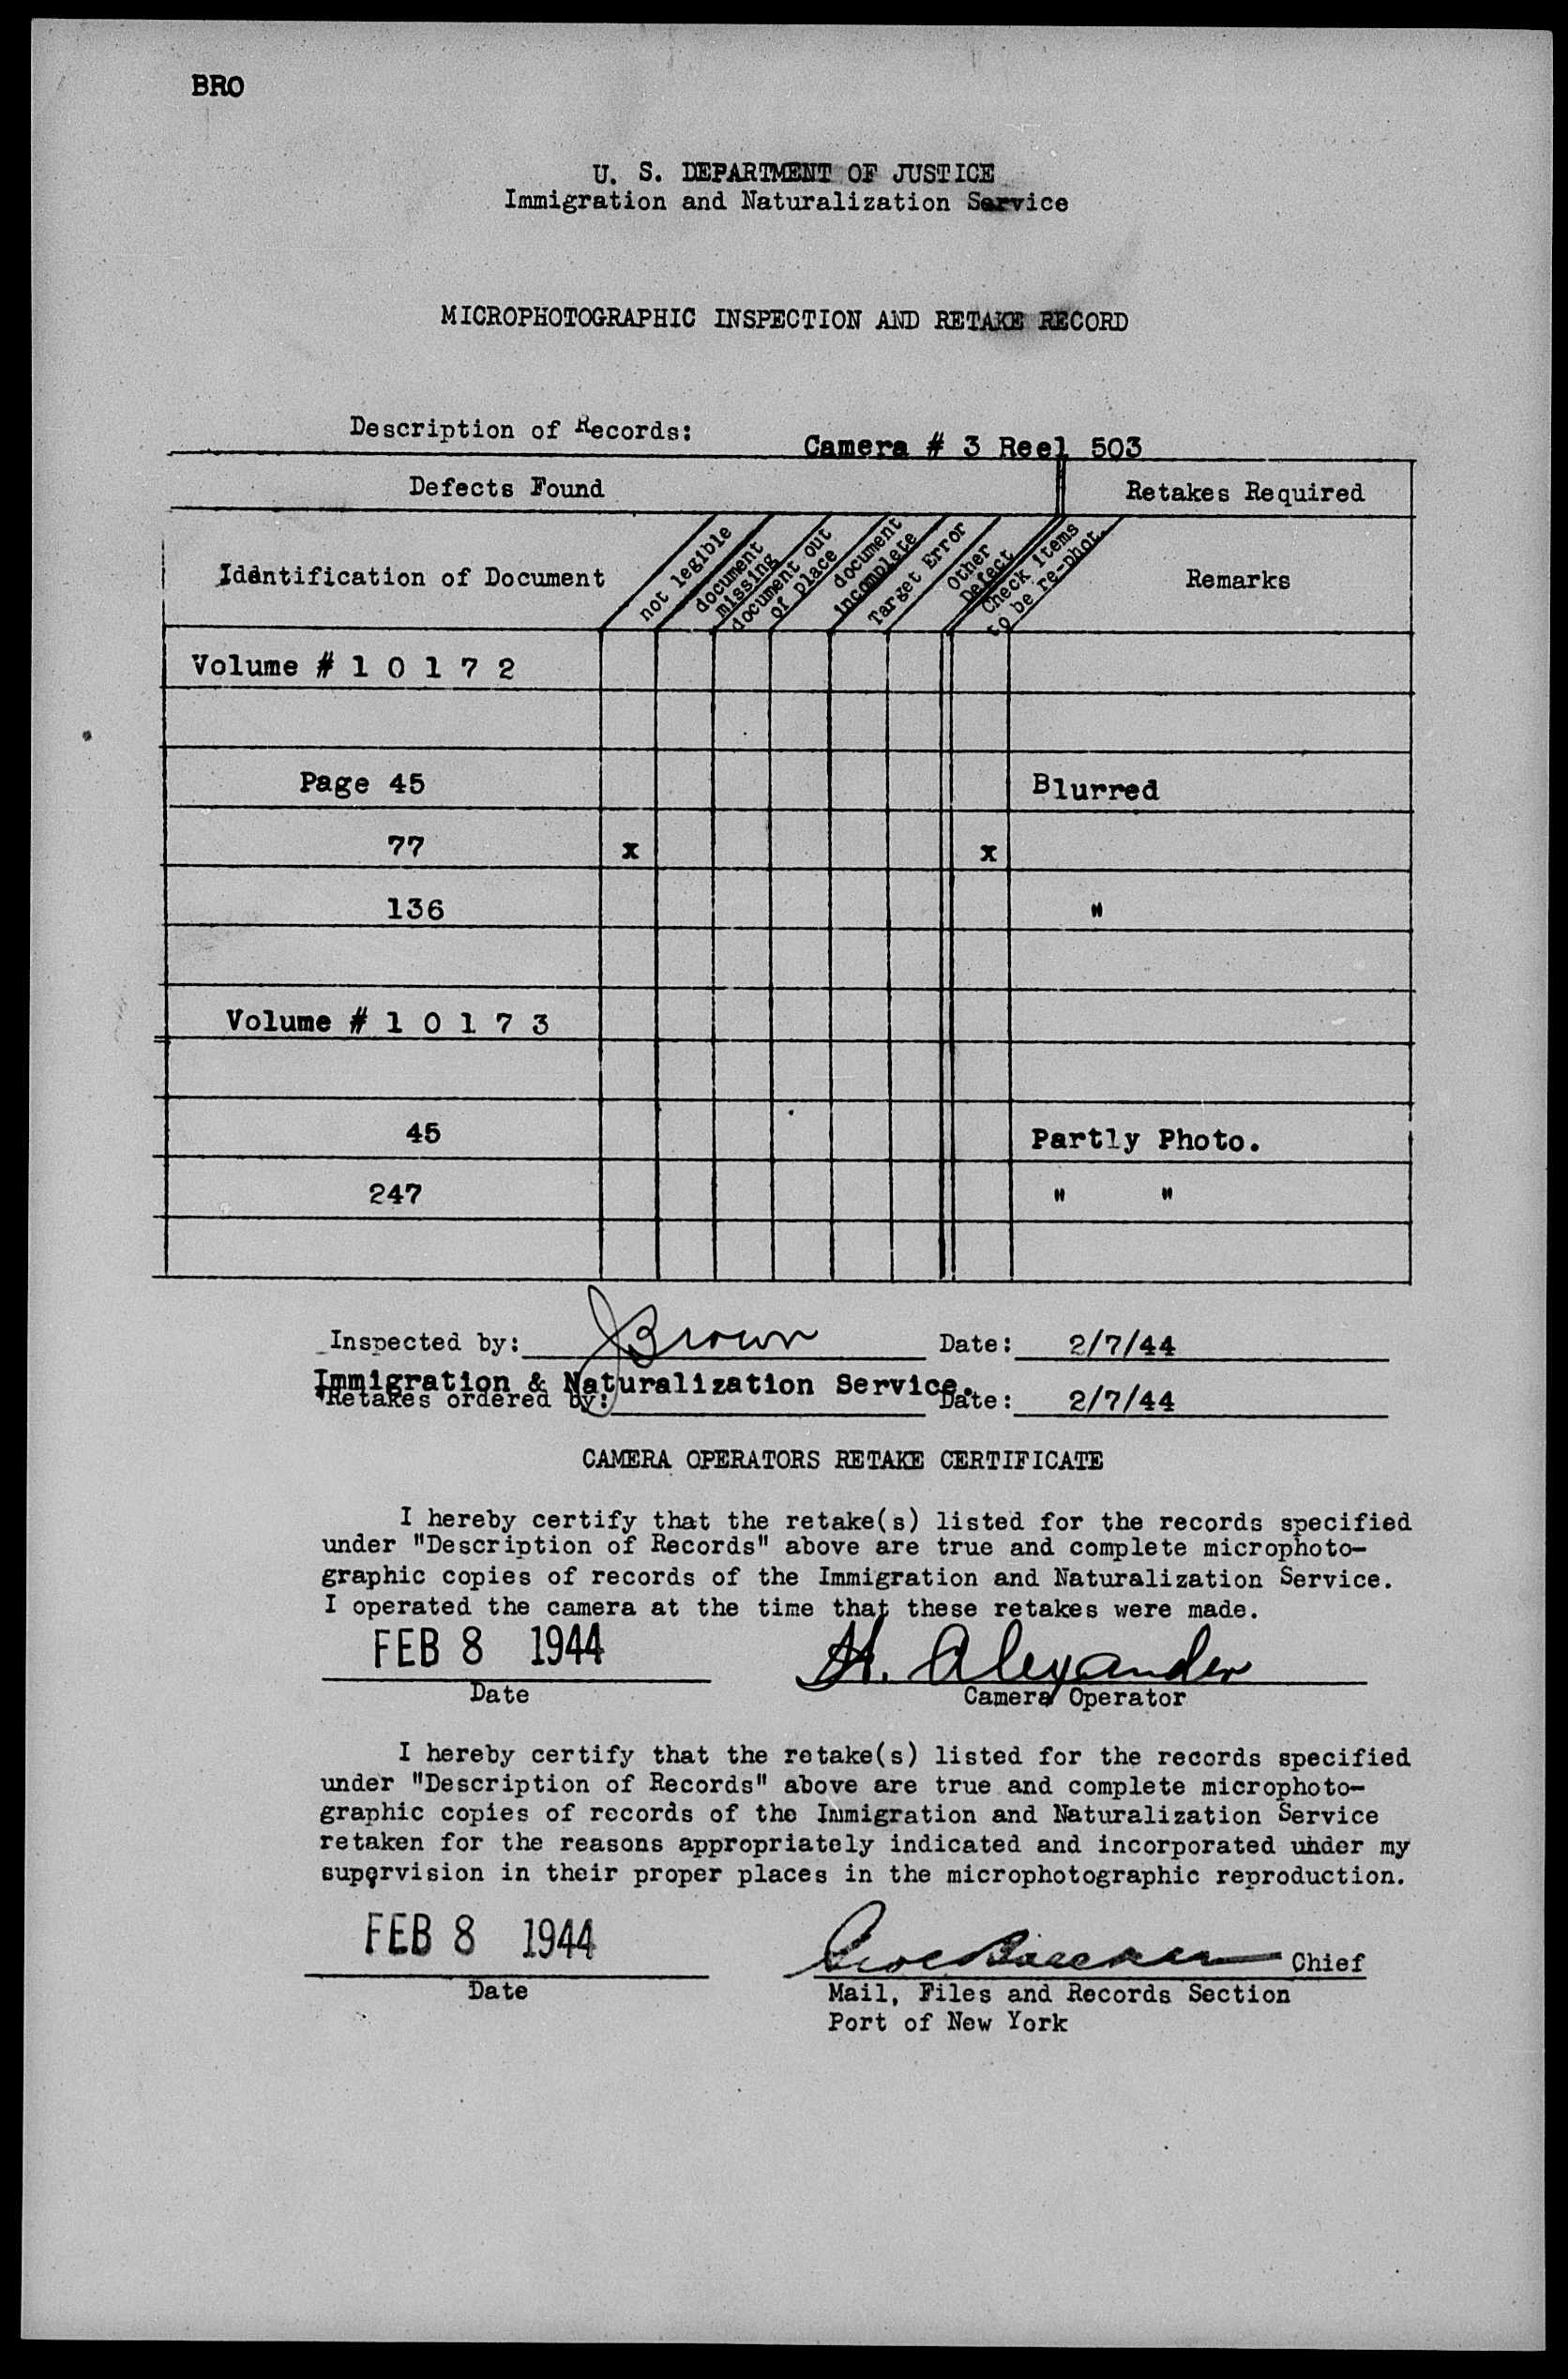 BRO
U. S. DEPARTMENT OF JUSTICE
Immigration and Naturalization Service
MICROPHOTOGRAPHIC INSPECTION AND RETAKE RECORD
Description of Records: Camera # 3 Reel 503
Defects Found Retakes Required
Identification of Document not legible document missing document out of place document incomplete Target Error Other Defect Check items to be re-phot. Remarks
Volume # 1 0 1 7 2
Page 45 Blurred
77 x x
136 "
Volume # 1 0 1 7 3
45 Partly Photo.
247 " "
Inspected by: JBrown Date: 2/7/44
Immigration & Naturalization Service.
*Retakes ordered by: Date: 2/7/44
CAMERA OPERATORS RETAKE CERTIFICATE
I hereby certify that the retake(s) listed for the records specified
under "Description of Records" above are true and complete microphoto-
graphic copies of records of the Immigration and Naturalization Service.
I operated the camera at the time that these retakes were made.
FEB 8 1944 H. Alexander
Date Camera Operator
I hereby certify that the retake(s) listed for the records specified
under "Description of Records" above are true and complete microphoto-
graphic copies of records of the Immigration and Naturalization Service
retaken for the reasons appropriately indicated and incorporated under my
supervision in their proper places in the microphotographic reproduction.
FEB 8 1944 Chief
Date Mail, Files and Records Section
Port of New York